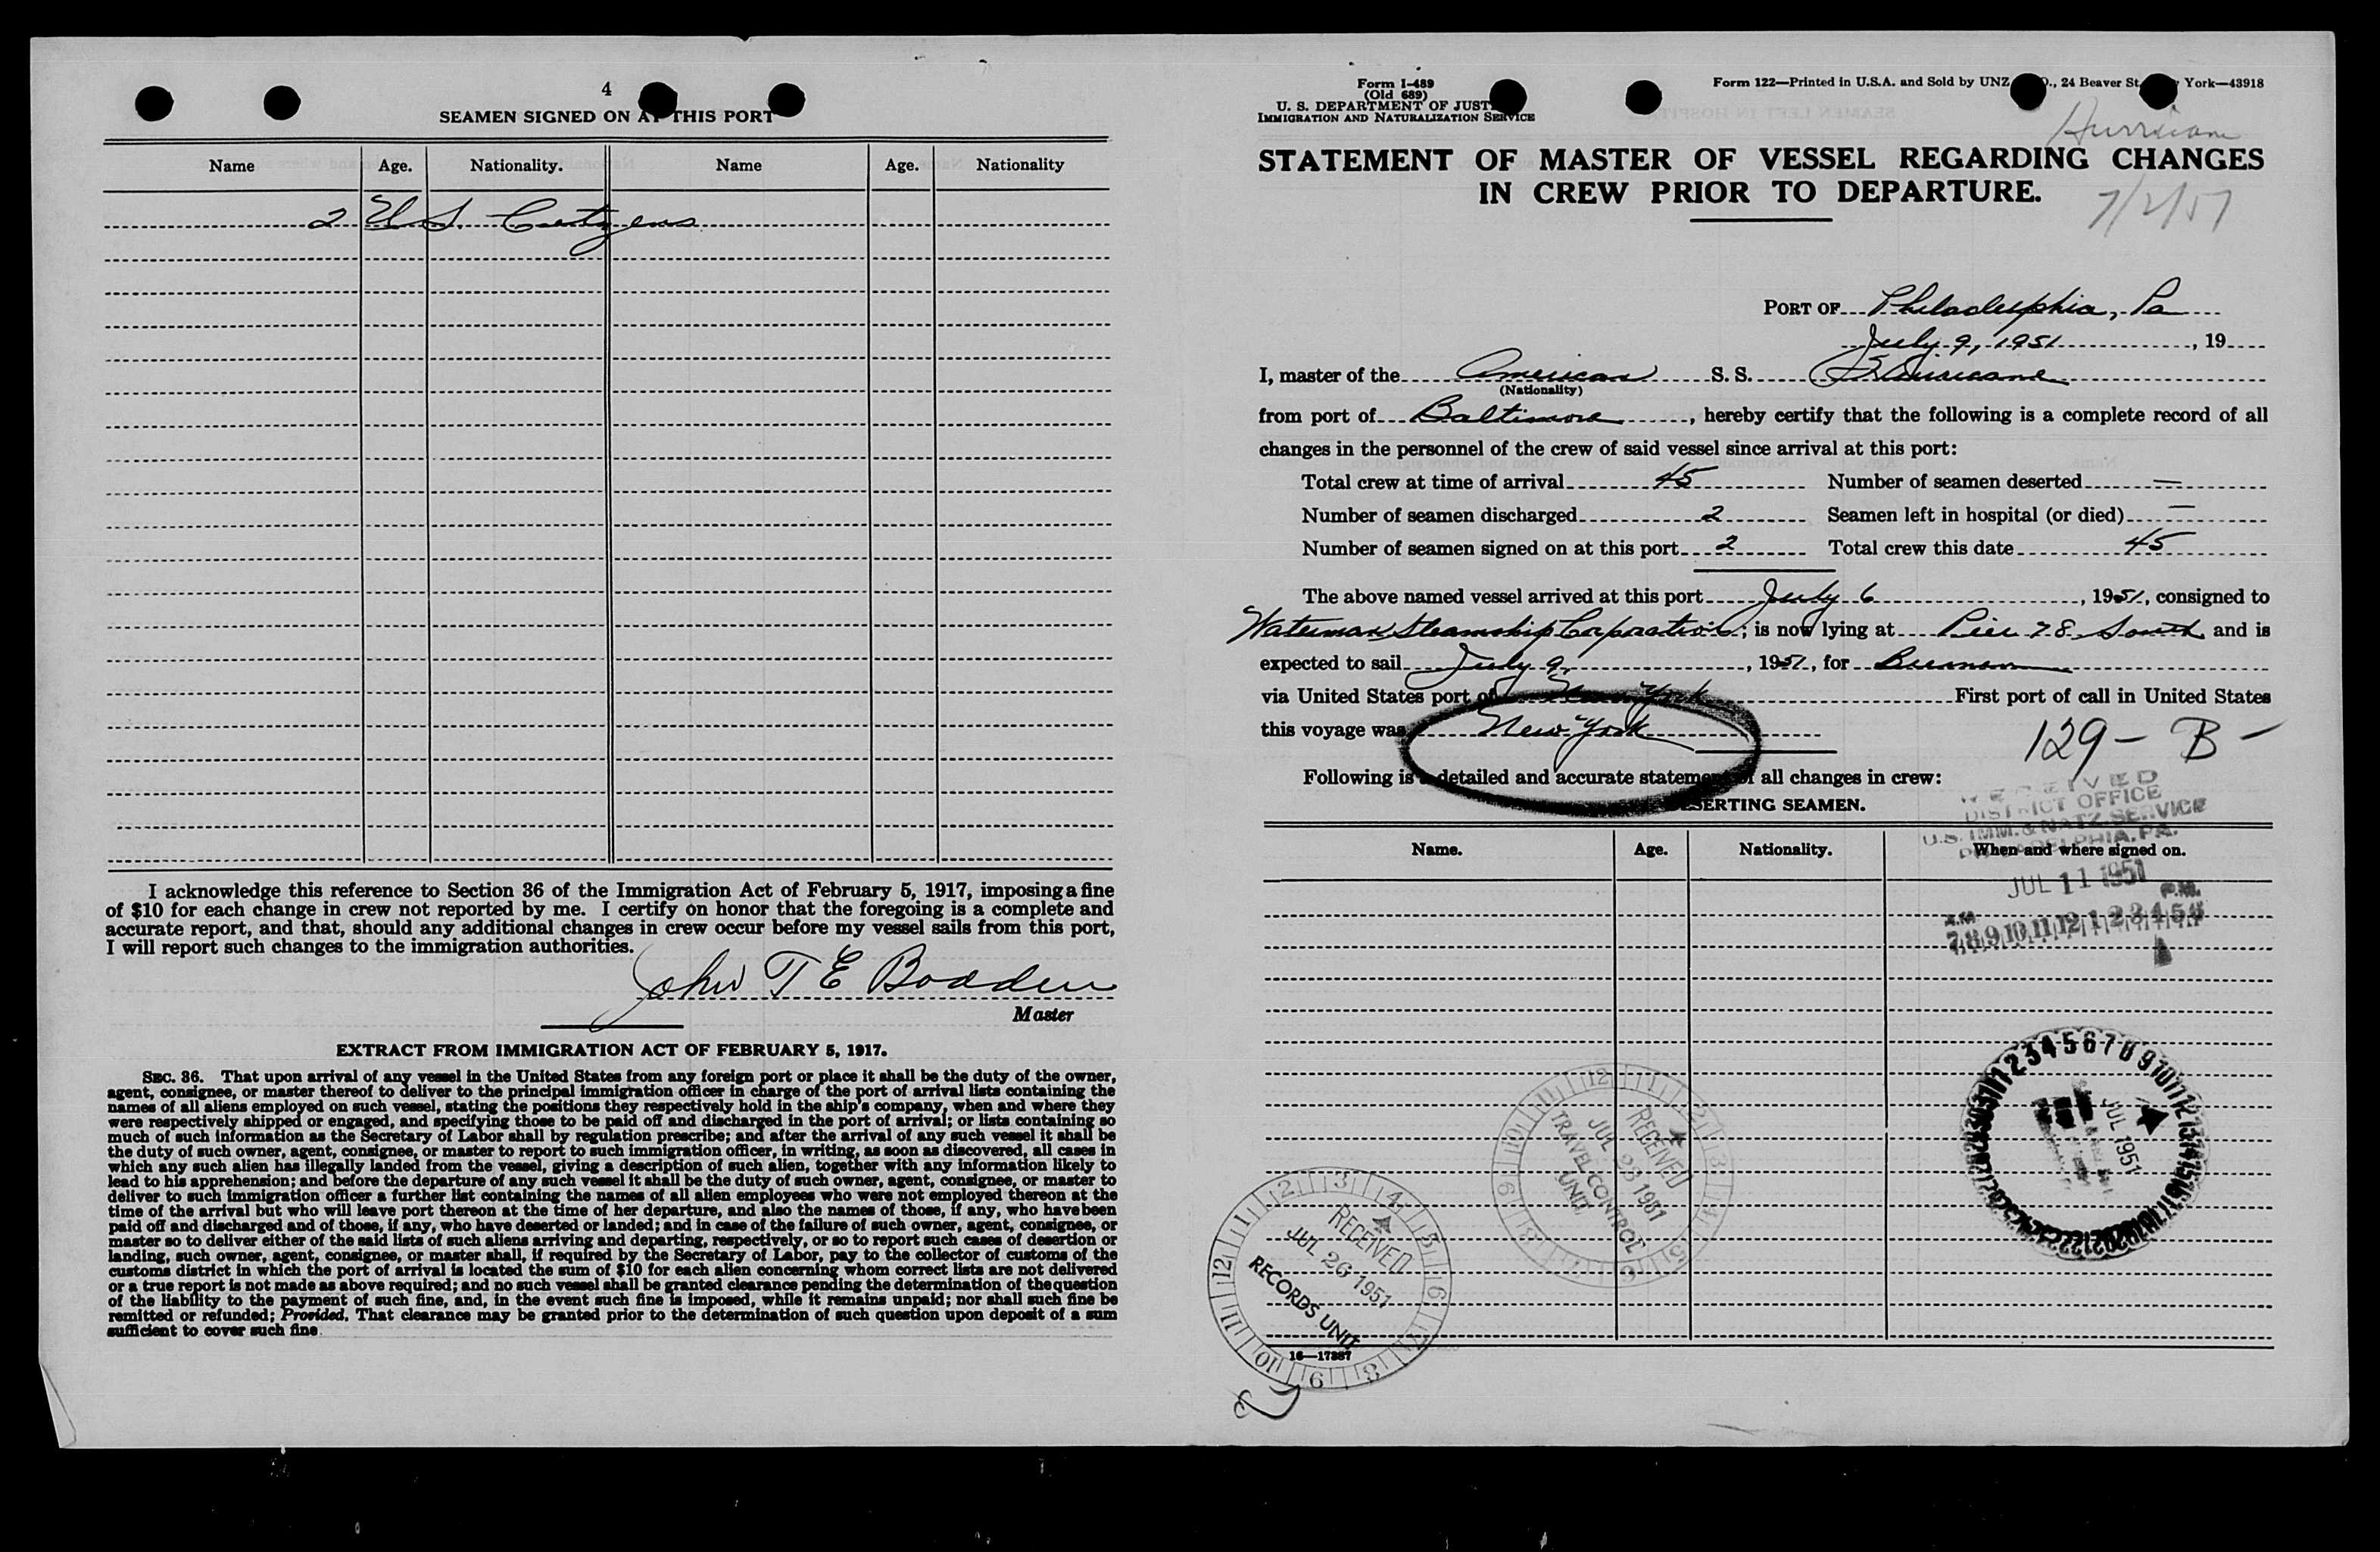 4
SEAMEN SIGNED ON AT THIS PORT
Name Age. Nationality. Name Age. Nationality
2 U S. Citizens
I acknowledge this reference to Section 36 of the Immigration Act of February 5, 1917, imposing a fine
of $10 for each change in crew not reported by me. I certify on honor that the foregoing is a complete and
accurate report, and that, should any additional changes in crew occur before my vessel sails from this port,
I will report such changes to the immigration authorities.
John T E Bodden
Master
EXTRACT FROM IMMIGRATION ACT OF FEBRUARY 5, 1917.
SEC. 36. That upon arrival of any vessel in the United States from any foreign port or place it shall be the duty of the owner,
agent, consignee, or master thereof to deliver to the principal immigration officer in charge of the port of arrival lists containing the
names of all aliens employed on such vessel, stating the positions they respectively hold in the ship's company, when and where they
were respectively shipped or engaged, and specifying those to be paid off and discharged in the port of arrival; or lists containing so
much of such information as the Secretary of Labor shall by regulation prescribe; and after the arrival of any such vessel it shall be
the duty of such owner, agent, consignee, or master to report to such immigration officer, in writing, as soon as discovered, all cases in
which any such alien has illegally landed from the vessel, giving a description of such alien, together with any information likely to
lead to his apprehension; and before the departure of any such vessel it shall be the duty of such owner, agent, consignee, or master to
deliver to such immigration officer a further list containing the names of all alien employees who were not employed thereon at the
time of the arrival but who will leave port thereon at the time of her departure, and also the names of those, if any, who have been
paid off and discharged and of those, if any, who have deserted or landed; and in case of the failure of such owner, agent, consignee, or
master so to deliver either of the said lists of such aliens arriving and departing, respectively, or so to report such cases of desertion or
landing, such owner, agent, consignee, or master shall, if required by the Secretary of Labor, pay to the collector of customs of the
customs district in which the port of arrival is located the sum of $10 for each alien concerning whom correct lists are not delivered
or a true report is not made as above required; and no such vessel shall be granted clearance pending the determination of the question
of the liability to the payment of such fine, and, in the event such fine is imposed, while it remains unpaid; nor shall such fine be
remitted or refunded; Provided, That clearance may be granted prior to the determination of such question upon deposit of a sum
sufficient to cover such fine
Form I-489
(Old 689)
U. S. DEPARTMENT OF JUST
IMMIGRATION AND NATURALIZATION SERVICE
Form 122—Printed in U.S.A. and Sold by UNZ ., 24 Beaver St. York—43918
Hurricane
STATEMENT OF MASTER OF VESSEL REGARDING CHANGES
IN CREW PRIOR TO DEPARTURE.
7/2/51
PORT OF Philadelphia, Pa
July 9, 1951 , 19
I, master of the American S. S. Hurricane
(Nationality)
from port of Baltimore , hereby certify that the following is a complete record of all
changes in the personnel of the crew of said vessel since arrival at this port:
Total crew at time of arrival 45 Number of seamen deserted —
Number of seamen discharged 2 Seamen left in hospital (or died) —
Number of seamen signed on at this port 2 Total crew this date 45
The above named vessel arrived at this port July 6 , 1951, consigned to
Waterman Steamship Corporation; is now lying at Pier 78 South and is
expected to sail July 9, , 1951, for Bremen
via United States port of New York First port of call in United States
this voyage was New York
129 - B -
Following is a detailed and accurate statement of all changes in crew:
DESERTING SEAMEN.
RECEIVED
DISTRICT OFFICE
U.S. IMM. & NATZ. SERVICE
PHILADELPHIA, PA.
Name. Age. Nationality. When and where signed on.
JUL 11 1951
A.M. P.M.
7,8,9,10,11,12,1,2,3,4,5,6
JUL 1951
RECEIVED
JUL 23 1951
TRAVEL CONTROL
UNIT
RECEIVED
JUL 26 1951
RECORDS UNIT
16—17387